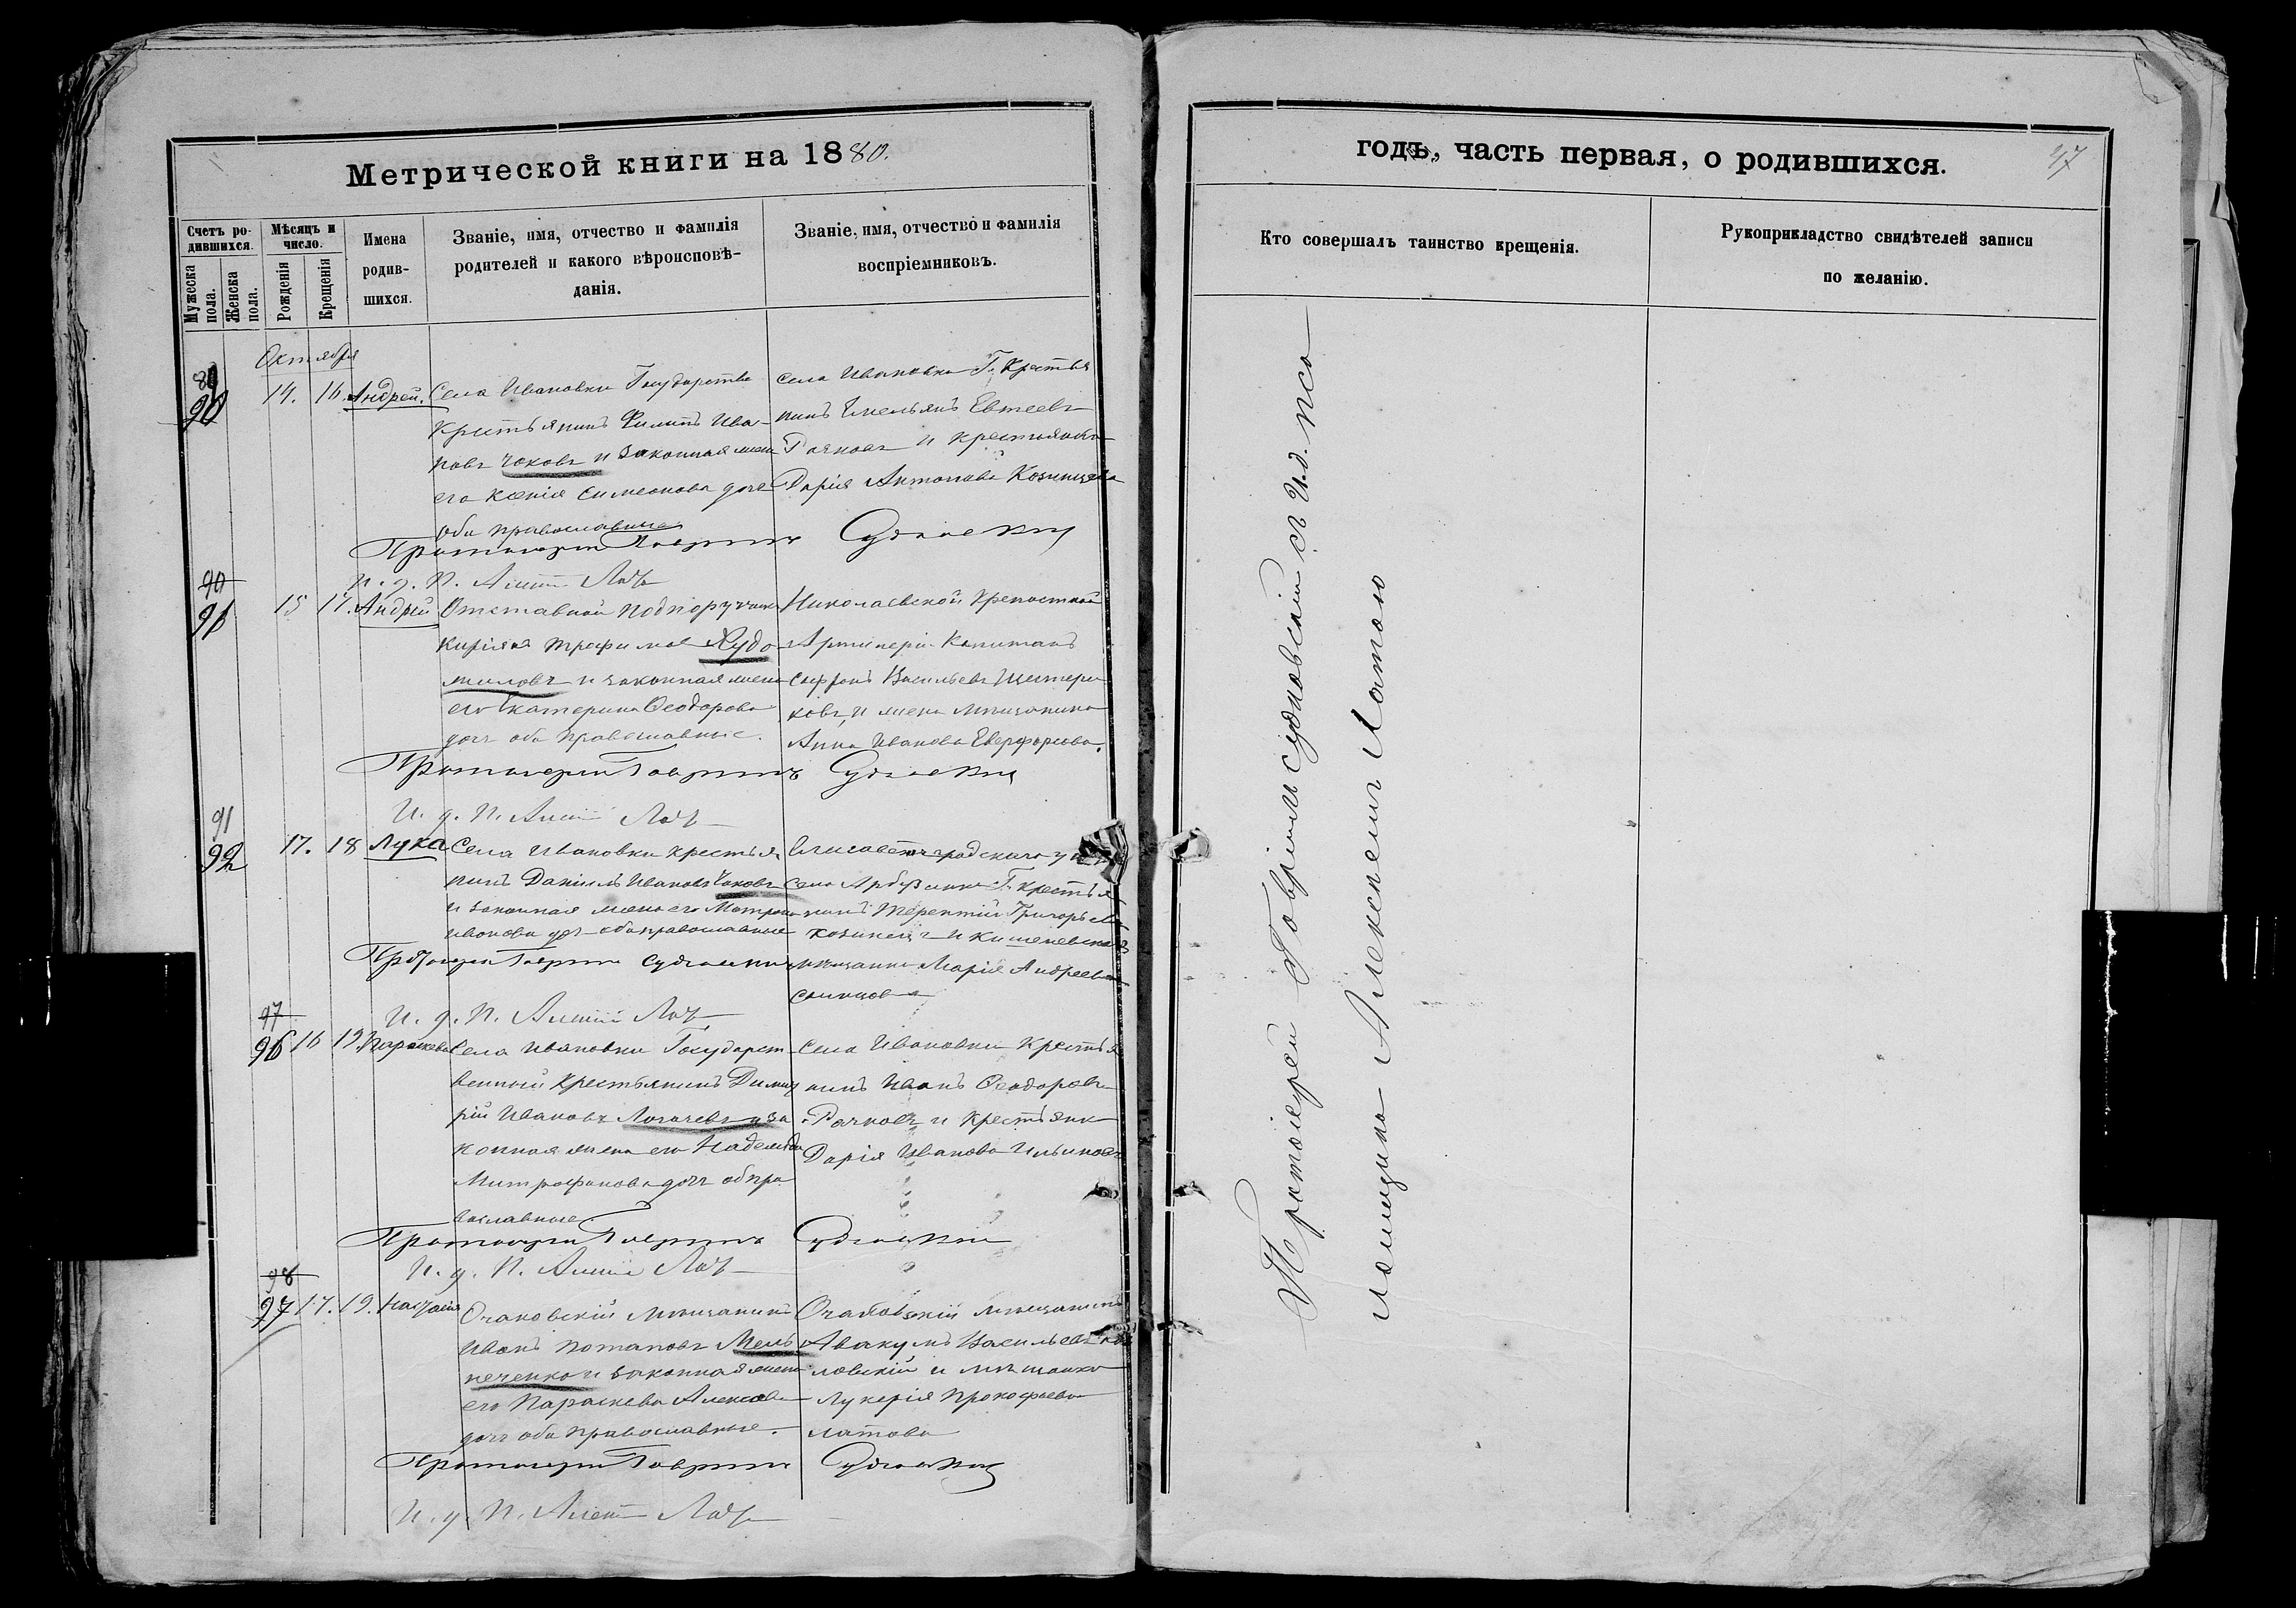 Метрической книги на 1880.
годъ, часть первая, о родившихся.
47
Счетъ ро-
дившихся.
Мужеска
пола.
Женска
пола.
Мѣсяцъ и
число.
Рожденія
Крещенія
Имена
родив-
шихся.
Званіе, имя, отчество и фамилія
родителей и какого вѣроисповѣ-
данія.
Званіе, имя, отчество и фамилія
воспріемниковъ.
Кто совершалъ таинство крещенія.
Рукоприкладство свидѣтелей записи
по желанію.
Октября
90
14. 16. Андрей.
Села Ивановки Государстве
крестьянинъ Филипъ Ива-
новъ Чоковъ и законная жена
его Ксенія Симеонова
оба православные
села Ивановки Г. Крестья
нинъ Емельянъ Евтеевъ
Рачковъ и крестьянка
Дарія Антонова
Протоіерей Гавріилъ Судковскій
И. д. П. Алексій
90
91
15 17. Андрей
Отставной Подпоручикъ
Кирилъ Трофимовъ Худо
миловъ и законная жена
его Екатерина Ѳеодорова
оба православные.
Николаевской Крепостной
Артилеріи Капитанъ
Васильевъ Щетери
ковъ, и жена мѣщанина
Анна Иванова
Протоіерей Гавріилъ Судковскій
И. д. П. Алексій
91
92
17. 18 Лука
Села Ивановки крестья
нинъ Даніилъ Ивановъ Чоковъ
и законная жена его Матрона
Иванова оба православные
Елисаветоградскаго
села Арбузинки Г. крестья
нинъ Терентій Григорьевъ
и кишеневская
мѣщанка Марія Андреева
Протоіерей Гавріилъ Судковскій
И. д. П. Алексій
97
96 16 19. Параскева
Села Ивановки Государст-
венной крестьянинъ Димит
рій Ивановъ Логачевъ и за
конная жена его Надежда
Митрофанова оба пра
вославные.
Села Ивановки Крестья
нинъ Иванъ Ѳеодоровъ
Рачковъ и Крестьянк
Дарія Иванова
Протоіерей Гавріилъ Судковскій
И. д. П. Алексій
98
97 17. 19. Настасія
Очаковскій мѣщанинъ
Иванъ Потаповъ Мель
ниченко и законная жена
его Параскева
оба православные.
Очаковскій мѣщанинъ
Авакумъ Васильевъ
ловскій и мѣщанка
Лукерія Прокофьева
Латова
Протоіерей Гавріилъ Судковскій
И. д. П. Алексій
Протоіерей Гавріилъ Судковскій съ И.д. псо
ломщика Алексѣемъ Латою